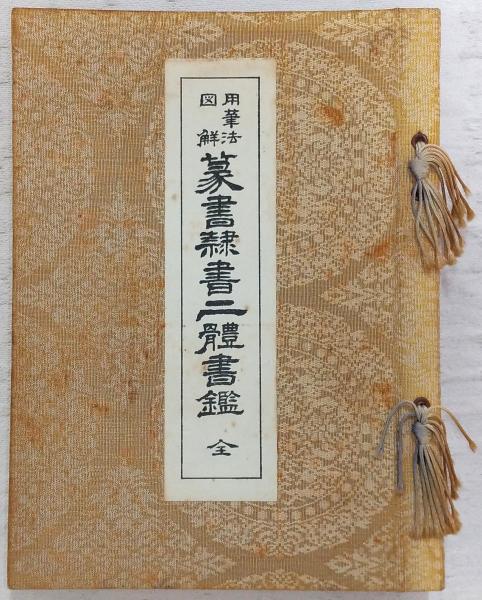 用筆法
図解
篆書隷書二體書鑑
全